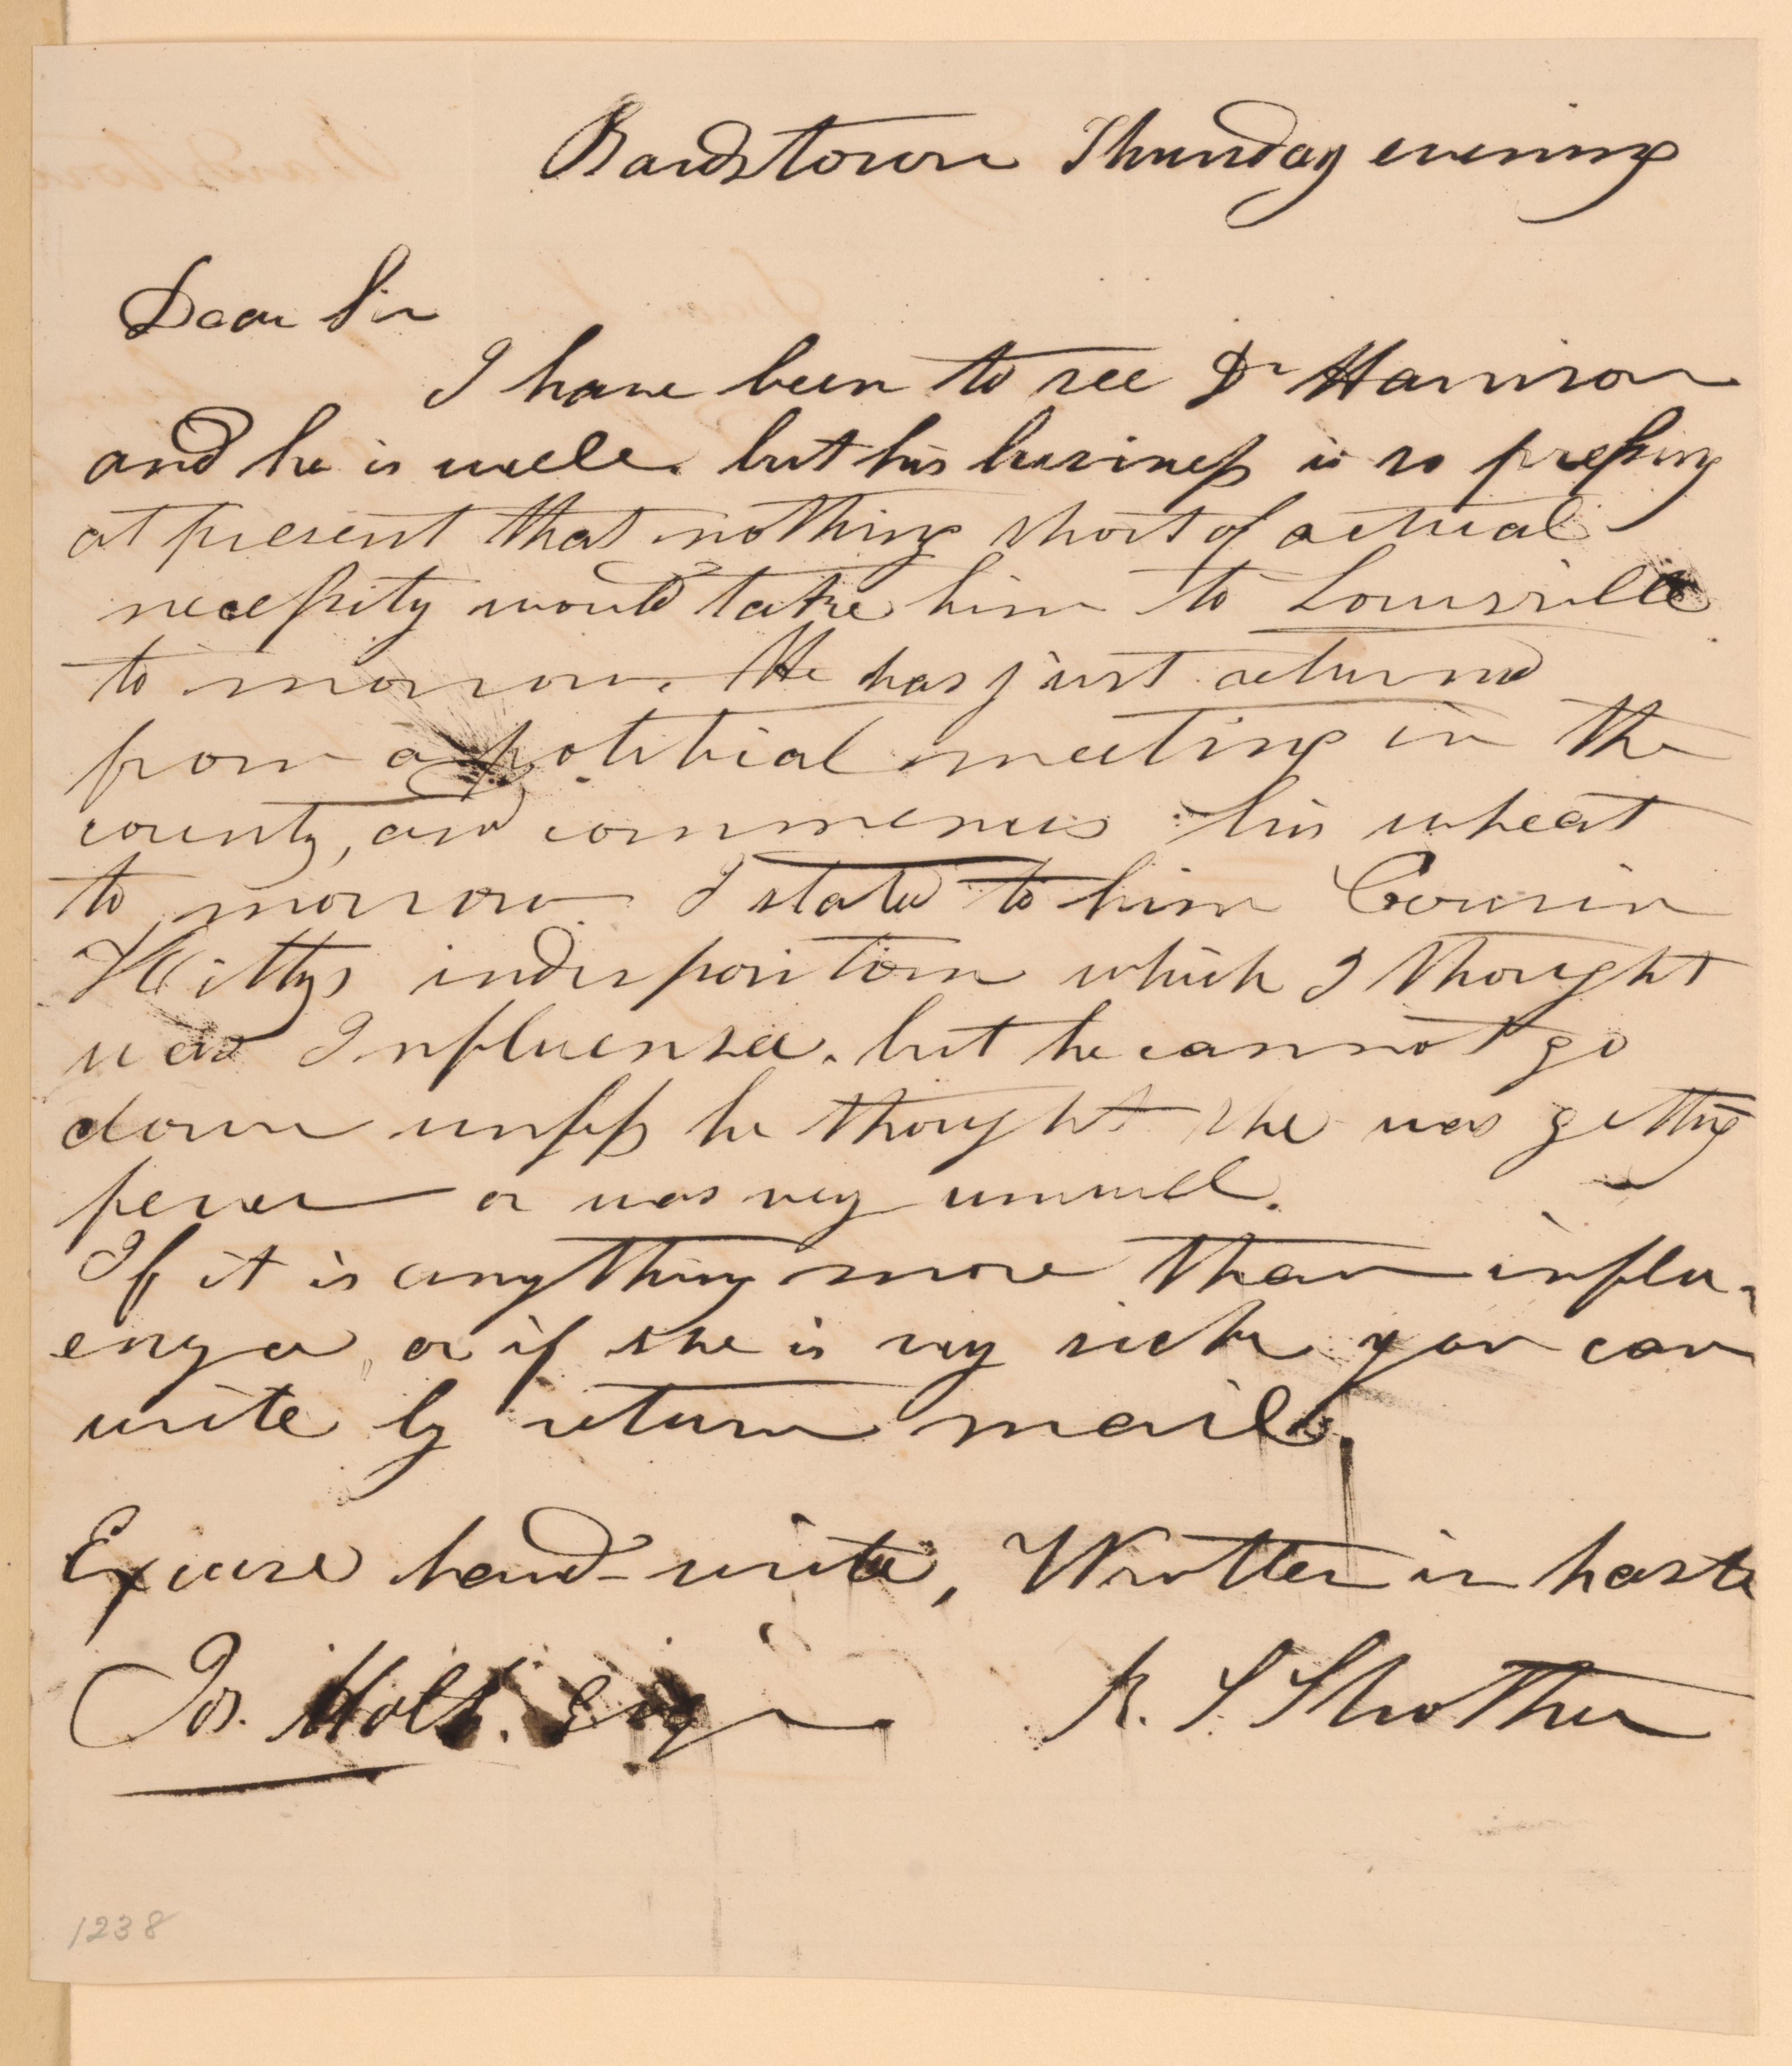 Bardstown Thursday evening
Dear Sir
I have been to see Dr Harrison
and he is well. but his business is so pressing
at present that nothing short of actual
necessity would take him to Louisville
to morrow. He has just returned
from a political meeting in the
county, and commences his wheat
to morrow. I stated to him Cousin
Kittys indisposition which I thought
was Influensa. but he cannot go
down unless he thought she was getting
fever or was very unwell.
If it is anything more than influ-
enza, or if she is very sick you can
write by return mail.
Excuse hand-write, Written in haste
Jos. Holt. Esqr
R. S Strother
1238